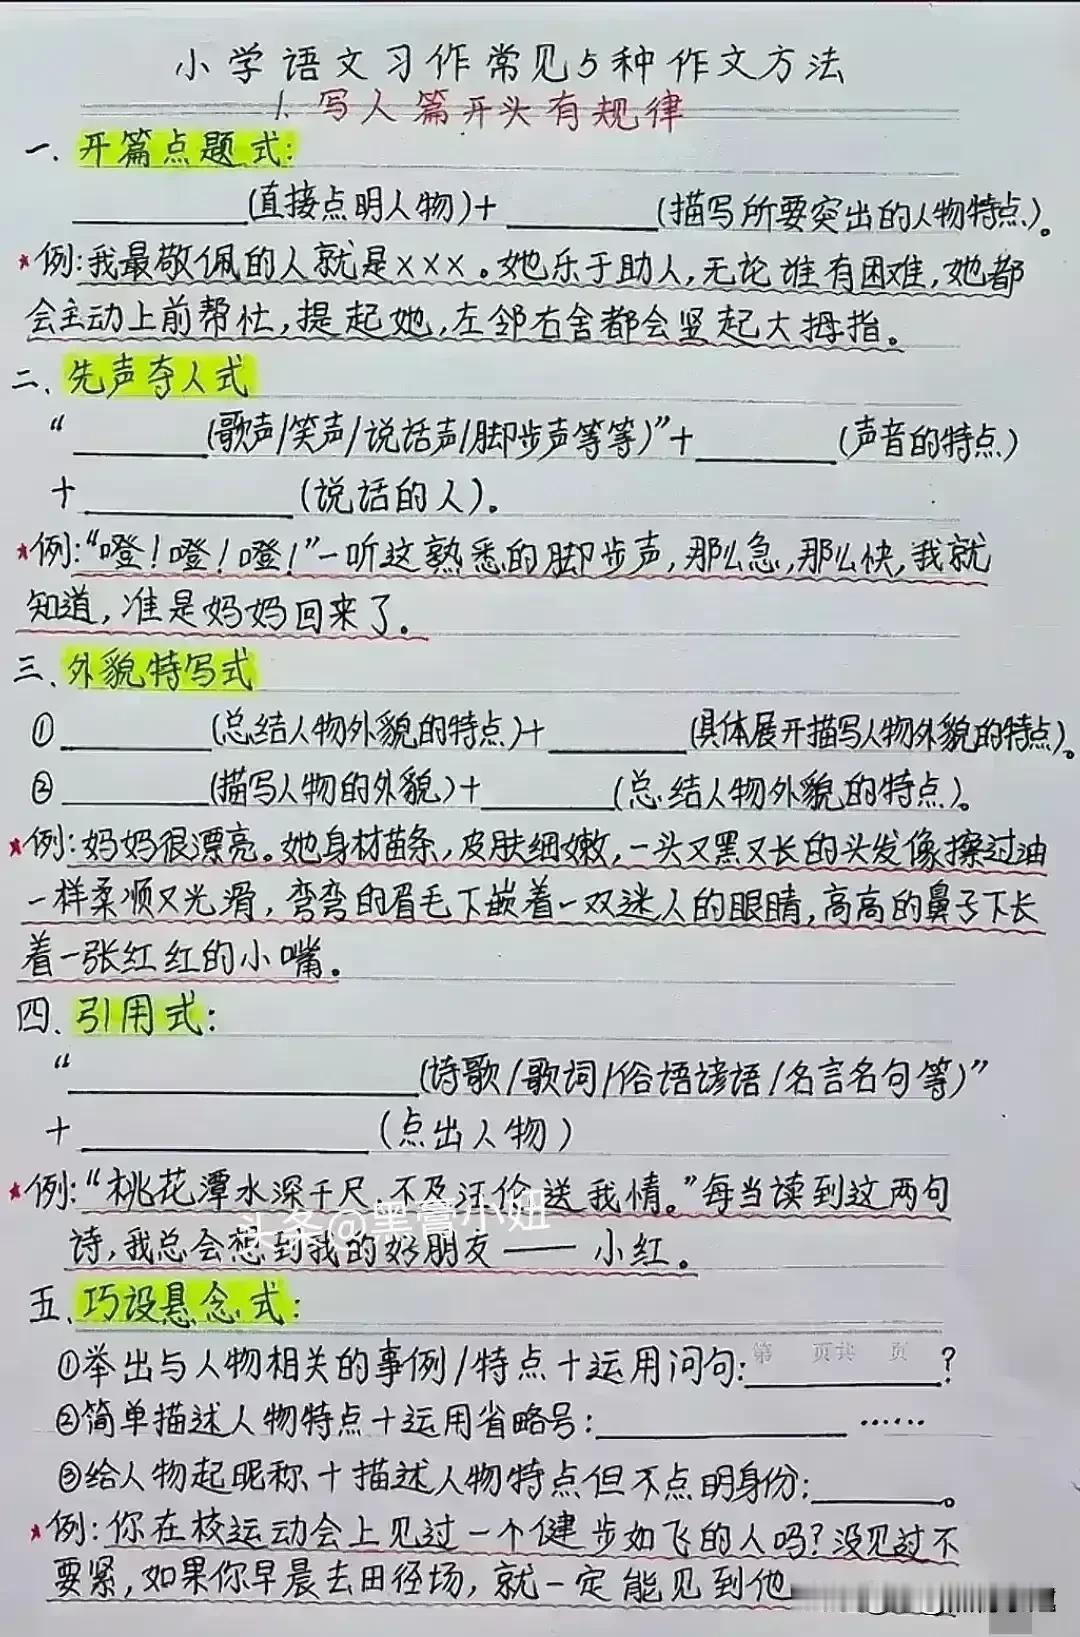 小学语文习作常见5种作文方法
1. 写人篇开头有规律
一、开篇点题式:
________(直接点明人物)+________(描写所要突出的人物特点)。
★例:我最敬佩的人就是×××。她乐于助人,无论谁有困难,她都
会主动上前帮忙,提起她,左邻右舍都会竖起大拇指。
二、先声夺人式
“________(歌声/笑声/说话声/脚步声等等)”+________(声音的特点)
+________(说话的人)。
★例:“噔!噔!噔!”一听这熟悉的脚步声,那么急,那么快,我就
知道,准是妈妈回来了。
三、外貌特写式
①________(总结人物外貌的特点)+________(具体展开描写人物外貌的特点)。
②________(描写人物的外貌)+________(总结人物外貌的特点)。
★例:妈妈很漂亮。她身材苗条,皮肤细嫩,一头又黑又长的头发像擦过油
一样柔顺又光滑,弯弯的眉毛下嵌着一双迷人的眼睛,高高的鼻子下长
着一张红红的小嘴。
四、引用式:
“________(诗歌/歌词/俗语谚语/名言名句等)”
+________(点出人物)
★例:“桃花潭水深千尺,不及汪伦送我情。”每当读到这两句
头条@黑管小妞
诗,我总会想到我的好朋友——小红。
五、巧设悬念式:
第 页共 页
①举出与人物相关的事例/特点+运用问句:________?
②简单描述人物特点+运用省略号:________……
③给人物起昵称+描述人物特点但不点明身份:________。
★例:你在校运动会上见过一个健步如飞的人吗?没见过不
要紧,如果你早晨去田径场,就一定能见到他